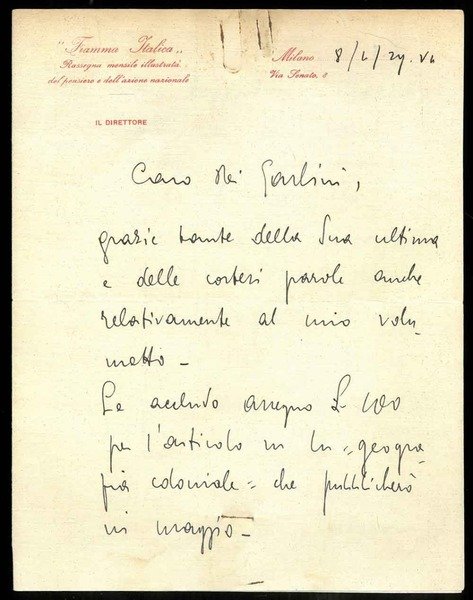 "Fiamma Italica"
Rassegna mensile illustrata
del pensiero e dell'azione nazionale
IL DIRETTORE
Milano 8/2/29. VII
Via Senato, 8
Caro Dei Gaslini,
grazie tante della Sua ultima
e delle cortesi parole anche
relativamente al mio volu-
metto -
Le accludo assegno L 100
per l'articolo in
"geogra-
fia coloniale" che pubblicherò
in maggio -